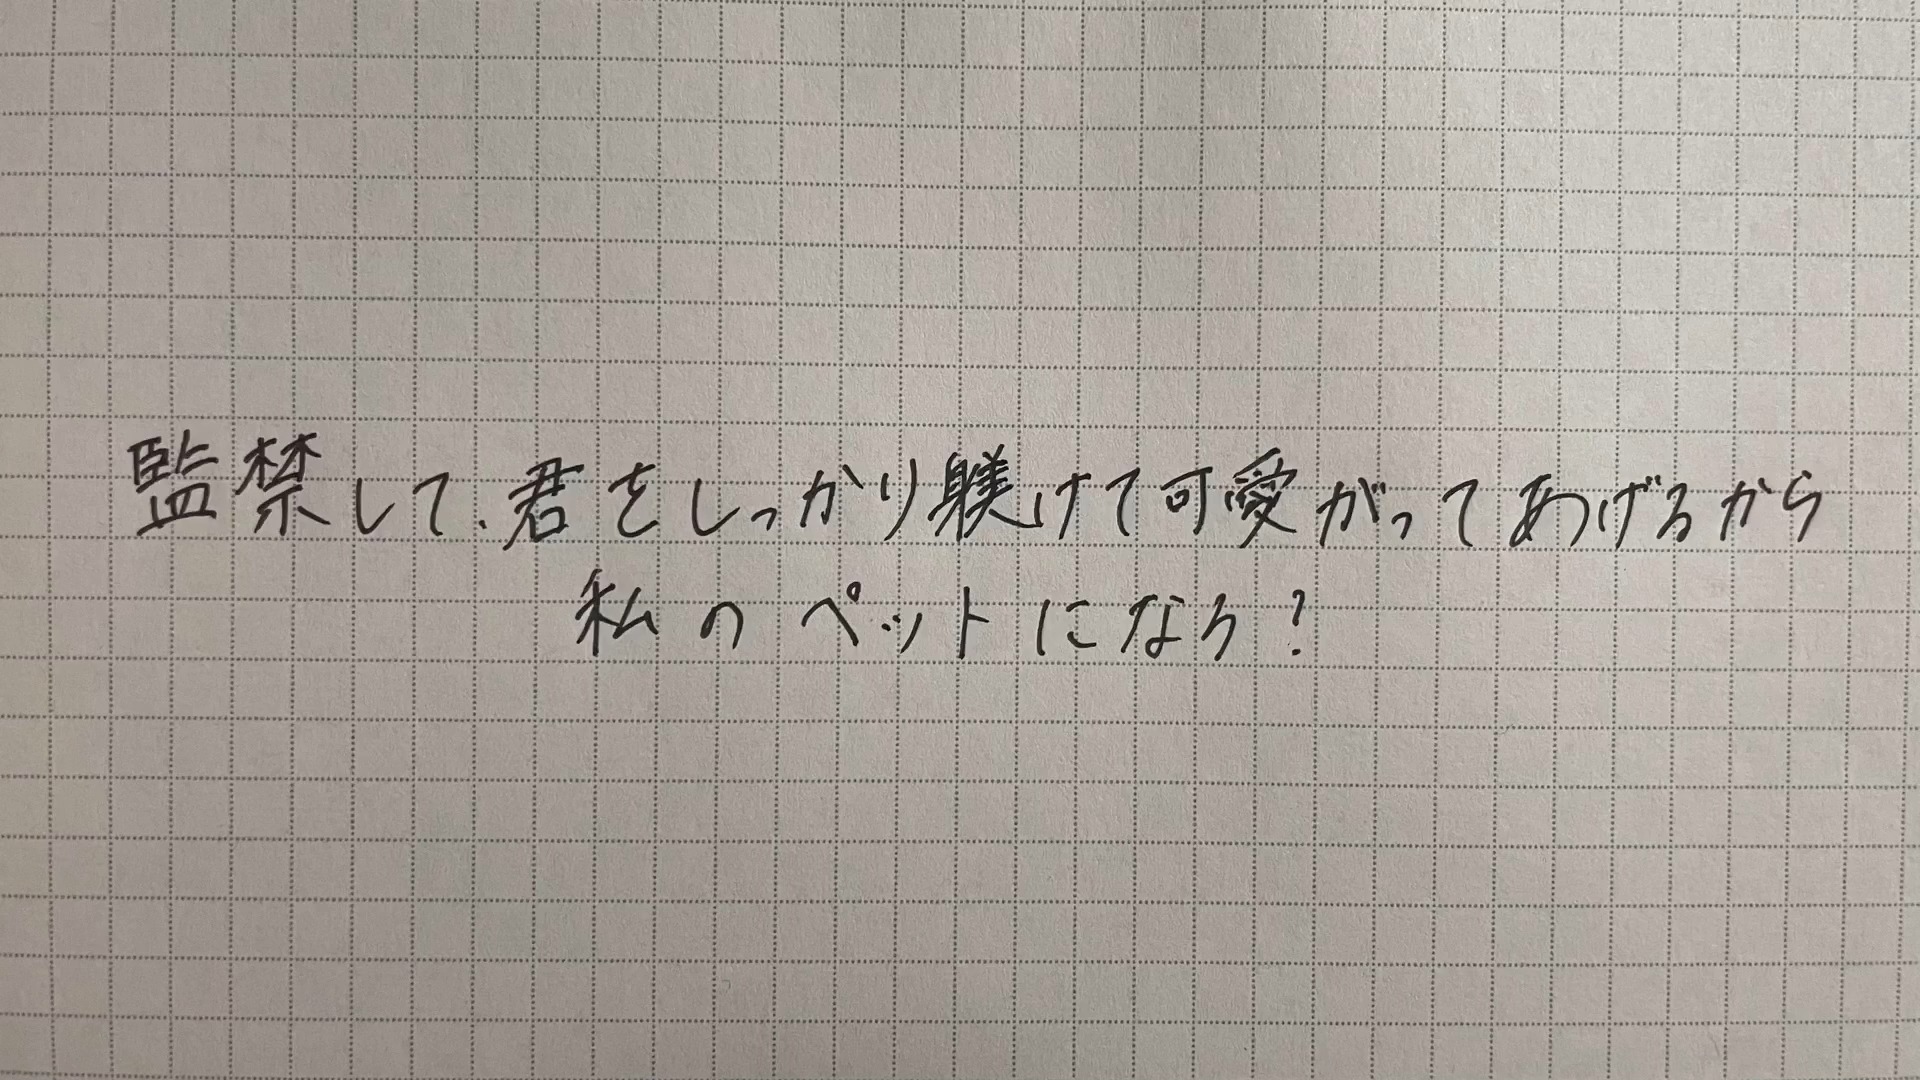 監禁して、君をしっかり躾けて可愛がってあげるから
私のペットになろ?